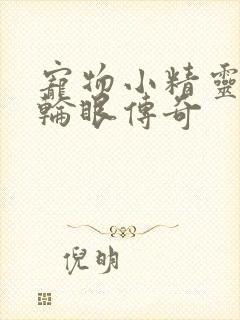 寵物小精靈
輪眼傳奇
倪明